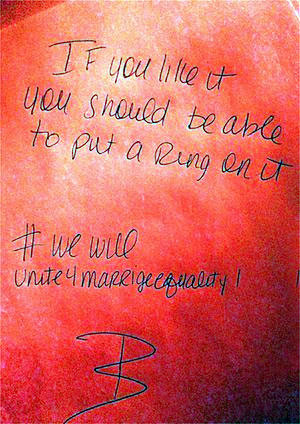 IF you like it
you should be able
to put a Ring on it
# we will
unite4marrigeequality!
B